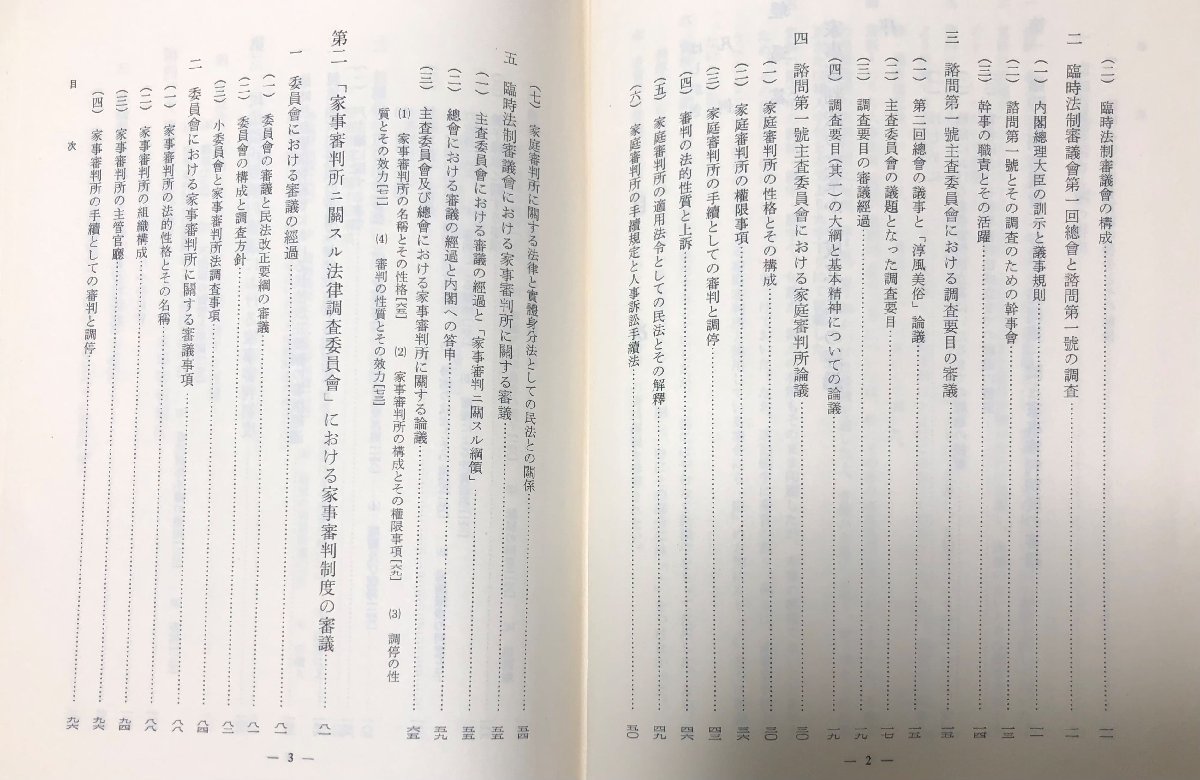 (二) 臨時法制審議會の構成……一一
二 臨時法制審議會第一回總會と諮問第一號の調査……一一
(一) 内閣總理大臣の訓示と議事規則……一一
(二) 諮問第一號とその調査のための幹事會……一三
(三) 幹事の職責とその活躍……一四
三 諮問第一號主査委員會における調査要目の審議……一五
(一) 第二回總會の議事と「淳風美俗」論議……一五
(二) 主査委員會の議題となった調査要目……一七
(三) 調査要目の審議經過……一九
(四) 調査要目(其一)の大綱と基本精神についての論議……一九
四 諮問第一號主査委員會における家庭審判所論議……三〇
(一) 家庭審判所の性格とその構成……三〇
(二) 家庭審判所の權限事項……三六
(三) 家庭審判所の手續としての審判と調停……四三
(四) 審判の法的性質と上訴……四六
(五) 家庭審判所の適用法令としての民法とその解釋……四九
(六) 家庭審判所の手續規定と人事訴訟手續法……五〇
— 2 —
(七) 家庭審判所に關する法律と實體身分法としての民法との關係……五四
五 臨時法制審議會における家事審判所に關する審議……五五
(一) 主査委員會における審議の經過と「家事審判ニ關スル綱領」……五五
(二) 總會における審議の經過と内閣への答申……五九
(三) 主査委員會及び總會における家事審判所に關する論議……六五
(1) 家事審判所の名稱とその性格[六五] (2) 家事審判所の構成とその權限事項[六九] (3) 調停の性
質とその效力[七二] (4) 審判の性質とその效力[七三]
第二 「家事審判所ニ關スル法律調査委員會」における家事審判制度の審議……八一
一 委員會における審議の經過……八一
(一) 委員會の審議と民法改正要綱の審議……八一
(二) 委員會の構成と調査方針……八二
(三) 小委員會と家事審判所法調査事項……八四
二 委員會における家事審判所に關する審議事項……八八
(一) 家事審判所の法的性格とその名稱……八八
(二) 家事審判所の組織構成……九四
(三) 家事審判所の主管官廳……九六
(四) 家事審判所の手續としての審判と調停……九六
目次
— 3 —